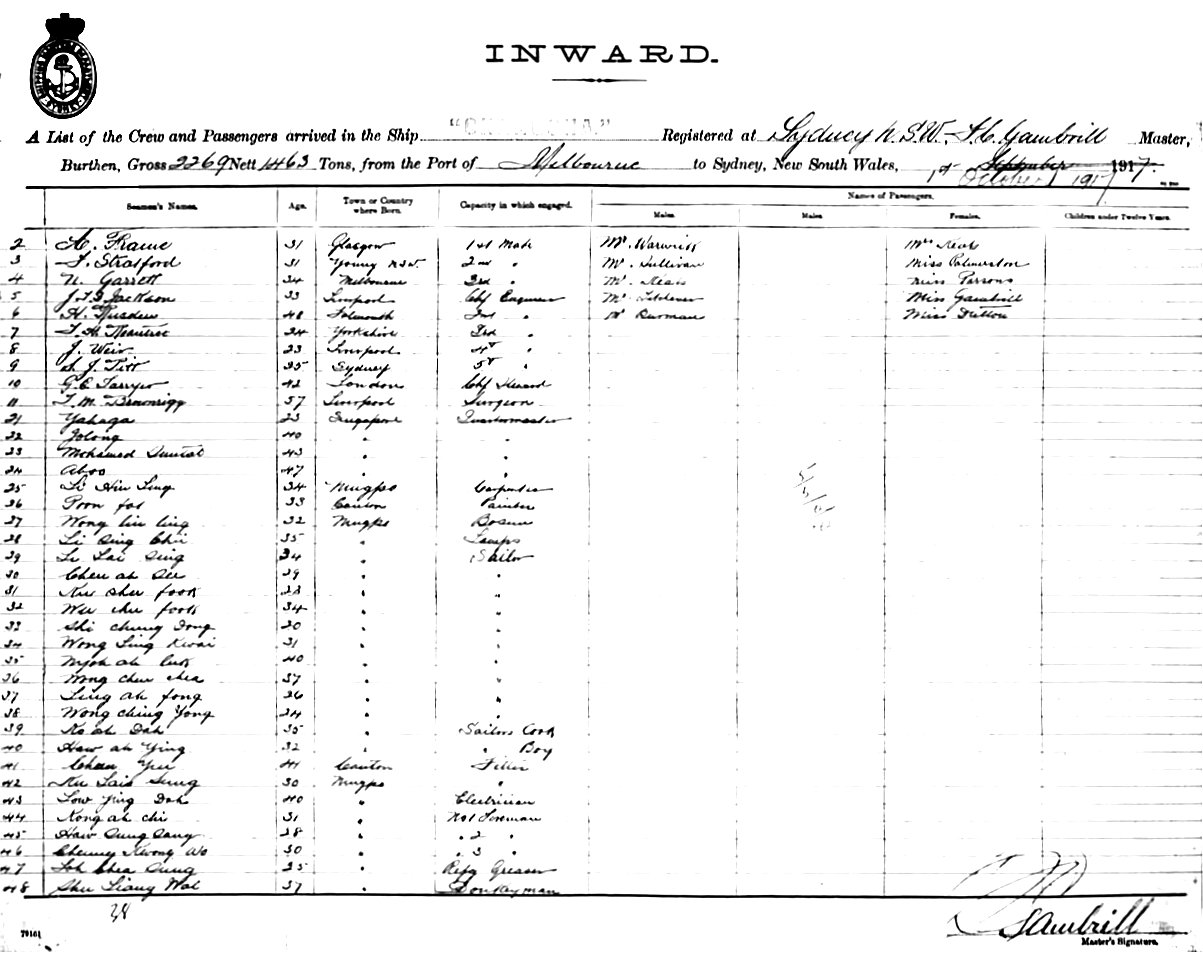 INWARD.
A List of the Crew and Passengers arrived in the Ship Registered at Sydney N.S.W. Gambrill Master,
Burthen, Gross 2269 Nett 1463 Tons, from the Port of Melbourne to Sydney, New South Wales, 1st September 1917.
October 1917
Names of Passengers.
Seamen's Names. Age. Town or Country where Born. Capacity in which engaged. Males. Males. Females. Children under Twelve Years.
2 A. Frame 31 Glasgow 1st Mate Mr. Warwick Mrs
3 Stratford 31 Young N.S.W. 2nd " Mr. Sullivan Miss Palmerston
4 N. Garrett 34 Melbourne 3rd " Mr. Miss Parsons
5 Jackson 33 Liverpool Chf Engineer Mr. Miss Gambrill
6 H. 48 Falmouth 2nd " Mr Burman Miss Dutton
7 24 Yorkshire 3rd "
8 J. Weir 23 Liverpool 4th "
9 J. Titt 25 Sydney 5th "
10 G.C. 42 London Chf Steward
11 T.M. Brownrigg 57 Liverpool Surgeon
21 Yahaga 23 Singapore Quartermaster
22 Jolong 40 " "
23 Mohamed 43 " "
24 Aboo 47 " "
25 Li Hin Ling 34 Ningpo Carpenter
26 Poon fat 33 Canton Painter
27 Wong lin ling 32 Ningpo Bosun
28 Li Sing Chii 35 " Lamps
29 Li Lai Sing 34 " Sailor
30 Chen ah See 29 " "
31 Kiu shu fook 23 " "
32 Wee chu fook 34 " "
33 Shi chung Dong 20 " "
34 Wong Ling Kwai 31 " "
35 ah 40 " "
36 Wong chu chea 37 " "
37 Ling ah fong 26 " "
38 Wong Ching Yong 24 " "
39 Ko ah Dah 35 " Sailors Cook
40 Haw ah Ying 32 " " Boy
41 Chan Yee 41 Canton Fitter
42 Ku Lais Sung 30 Ningpo "
43 Low Jing Dah 40 " Electrician
44 Kong ah chi 31 " No1 Fireman
45 Haw Sung Sang 28 " " 2 "
46 Cheung Kwong Wo 30 " " 3 "
47 Loh Chea Sung 25 " Refg Greaser
48 Shu Liang Wai 37 " Donkeyman
38
79161
Gambrill
Master's Signature.